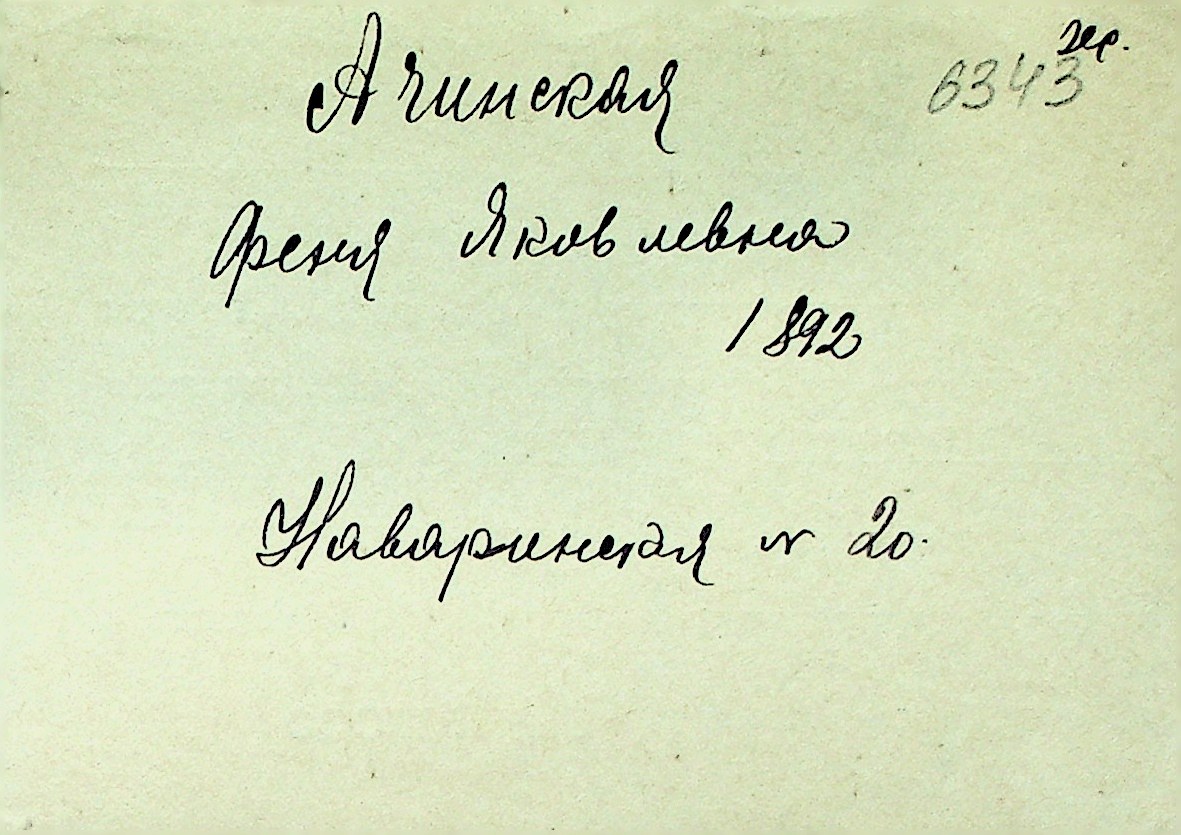 Ачинская
6343
Феня Яковлевна
1892
Наваринская № 20.